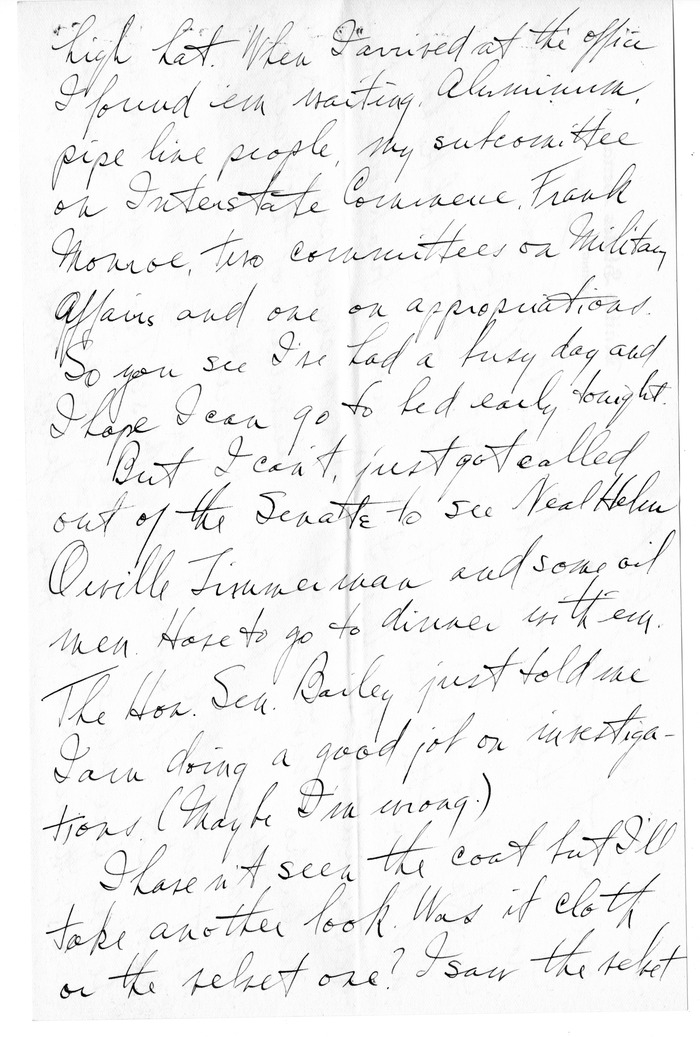 high hat. When I arrived at the office
I found 'em waiting. Aluminum,
pipe line people, my subcomittee
on Interstate Commerce, Frank
Monroe, two committees on Military
Affairs and one on appropriations.
So you see I've had a busy day and
I hope I can go to bed early tonight.
But I can't, just got called
out of the Senate to see Neal Helm
Orville Zimmerman and some oil
men. Have to go to dinner with 'em.
The Hon. Sen. Bailey just told me
I am doing a good job on investiga-
tions. (Maybe I'm wrong.)
I haven't seen the coat but I'll
take another look. Was it cloth
or the velvet one? I saw the velvet